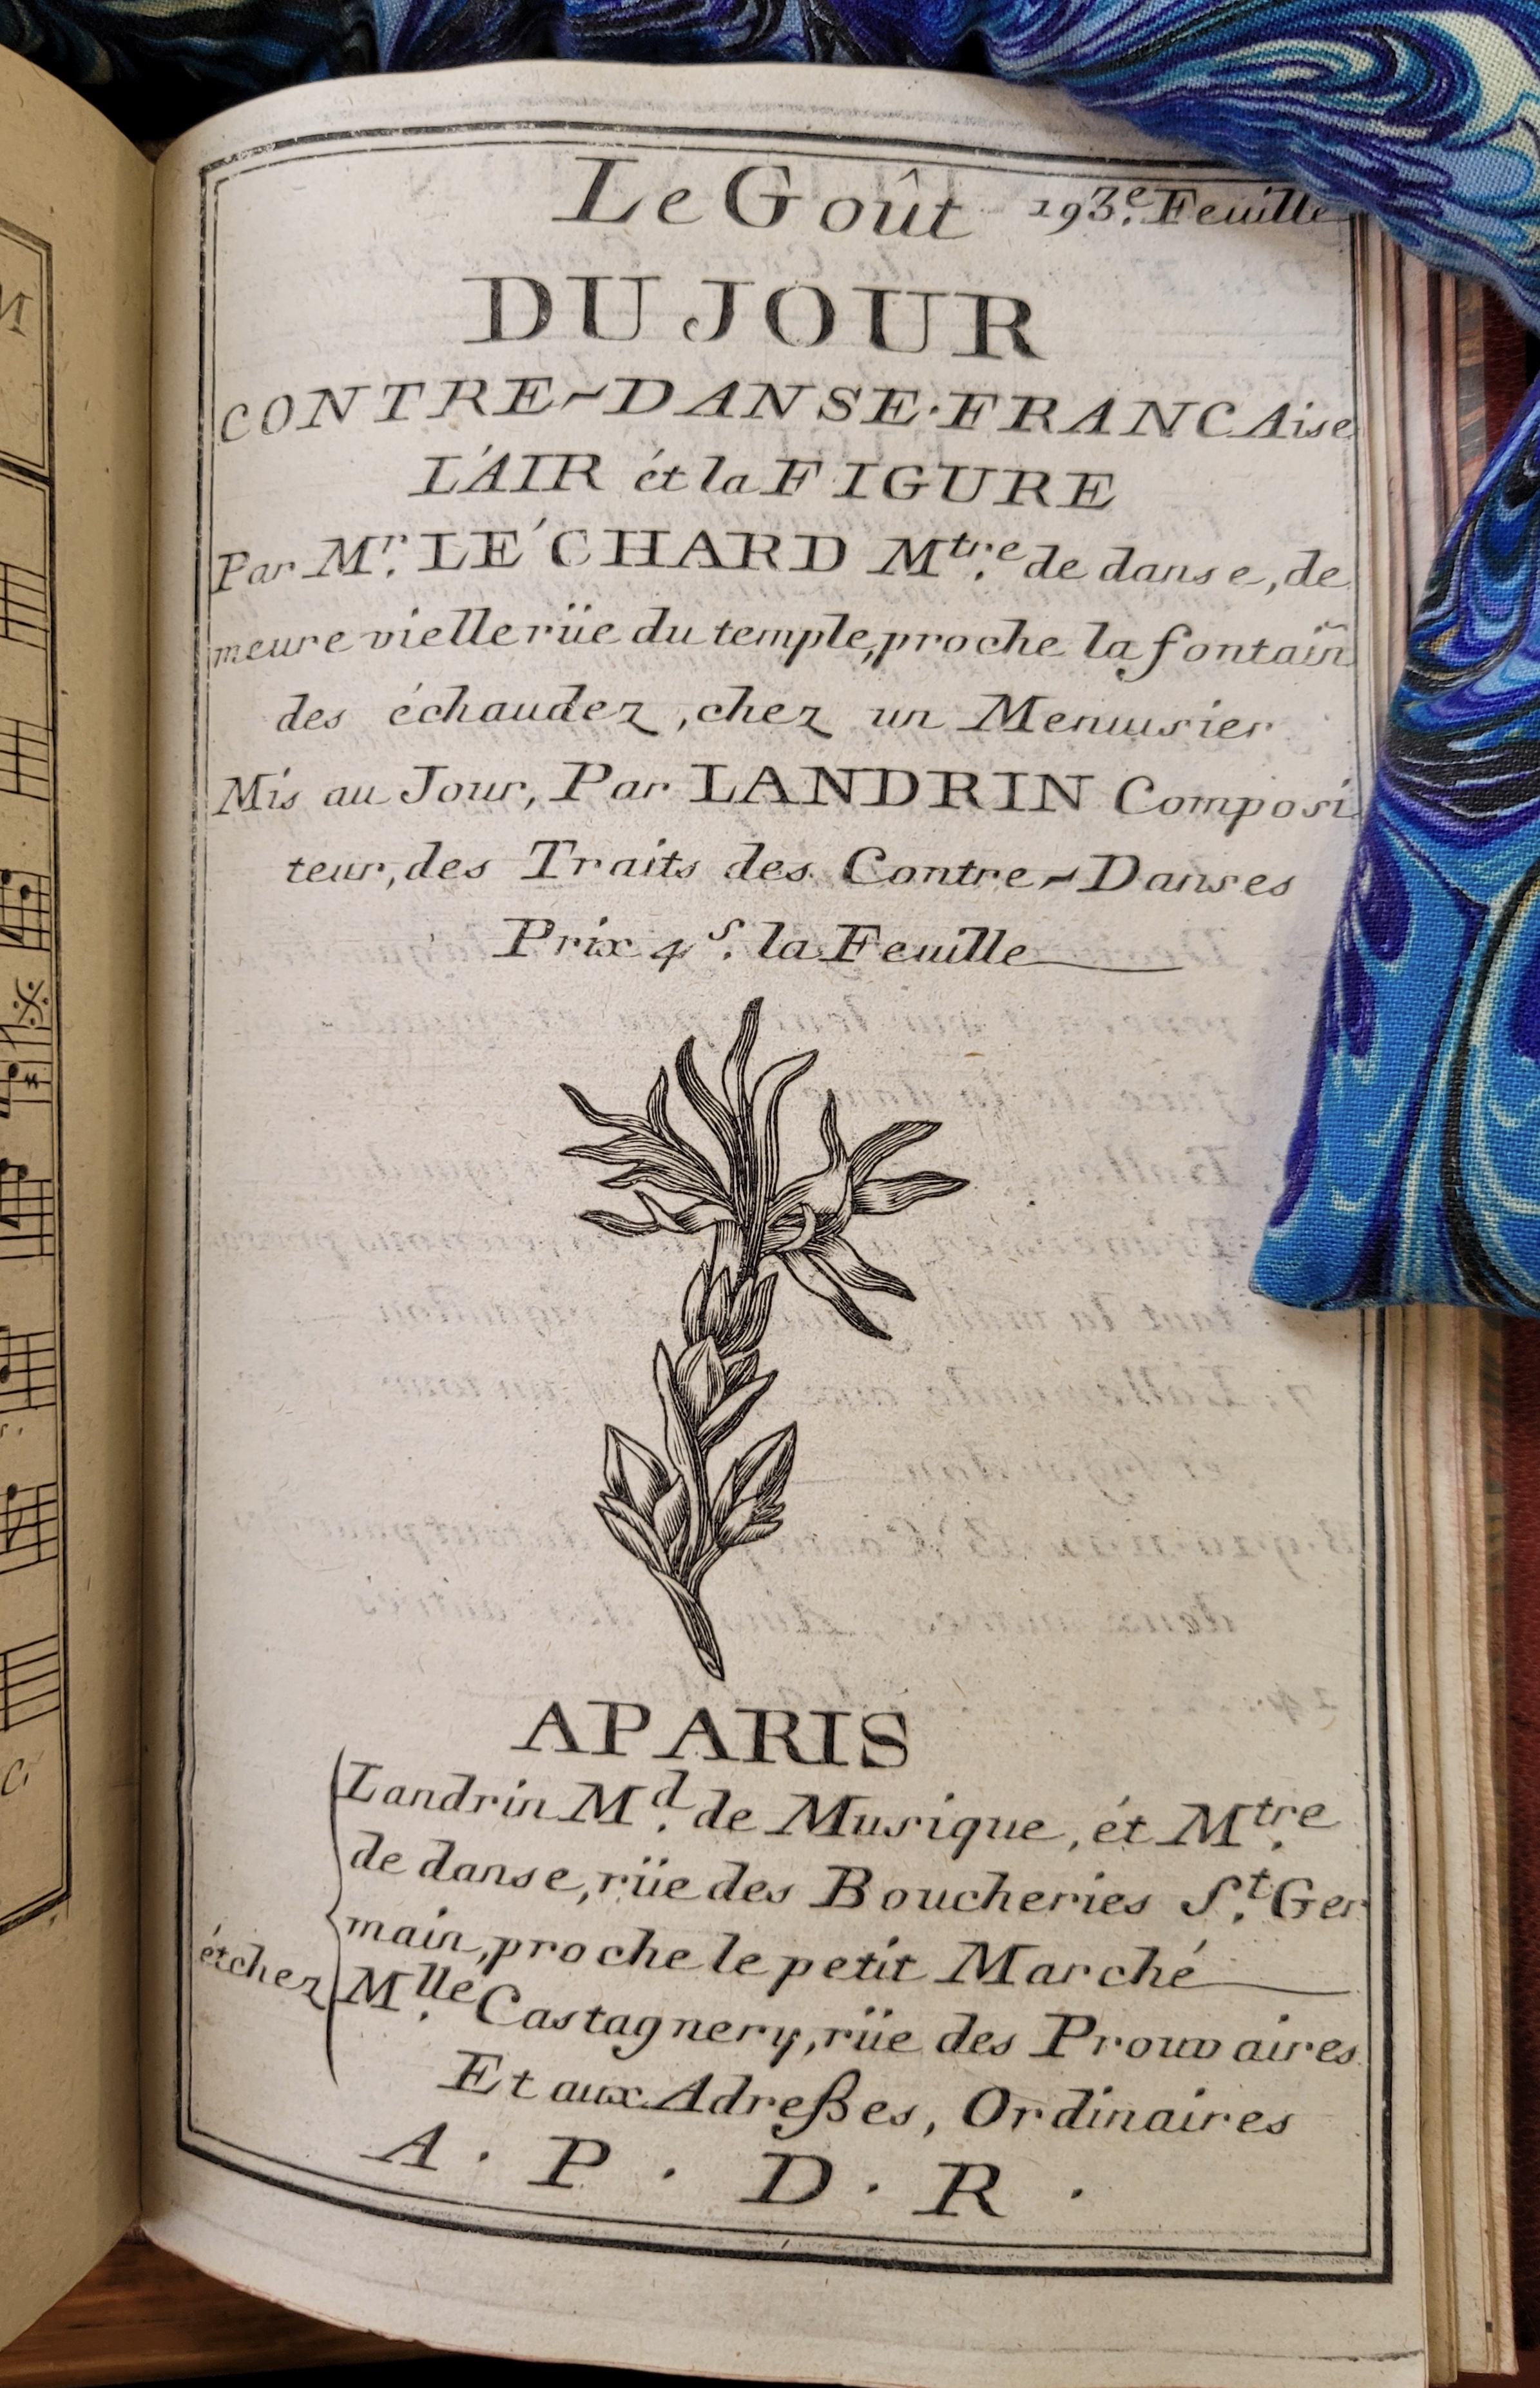 Le Goût 193.e Feuille
DU JOUR
CONTRE-DANSE·FRANCAise
L'AIR ét la FIGURE
Par Mr. LE'CHARD Mtre. de danse, de
meure vielle rüe du temple, proche la fontaiñ
des échaudez, chez un Menuisier
Mis au Jour, Par LANDRIN Composi
teur, des Traits des Contre-Danses
Prix 4 s. la Feuille
A PARIS
Landrin Md. de Musique, ét Mtre.
de danse, rüe des Boucheries St. Ger
main, proche le petit Marché
ét chez Mlle. Castagnery, rüe des Prouvaires
Et aux Adreßes, Ordinaires
A. P. D. R.